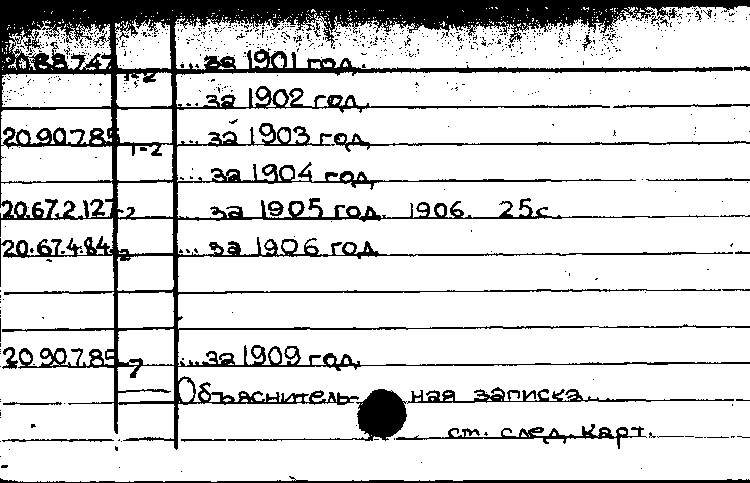 20.88.7.47 1-2 ... за 1901 год.
... за 1902 год.
20.90.7.85 1-2 ... за 1903 год.
... за 1904 год.
20.67.2.127-2 ... за 1905 год. 1906. 25с.
20.67.4.84-2 ... за 1906 год
20.90.7.85-7 ... за 1909 год.
Объяснитель- ная записка...
ст. след. карт.